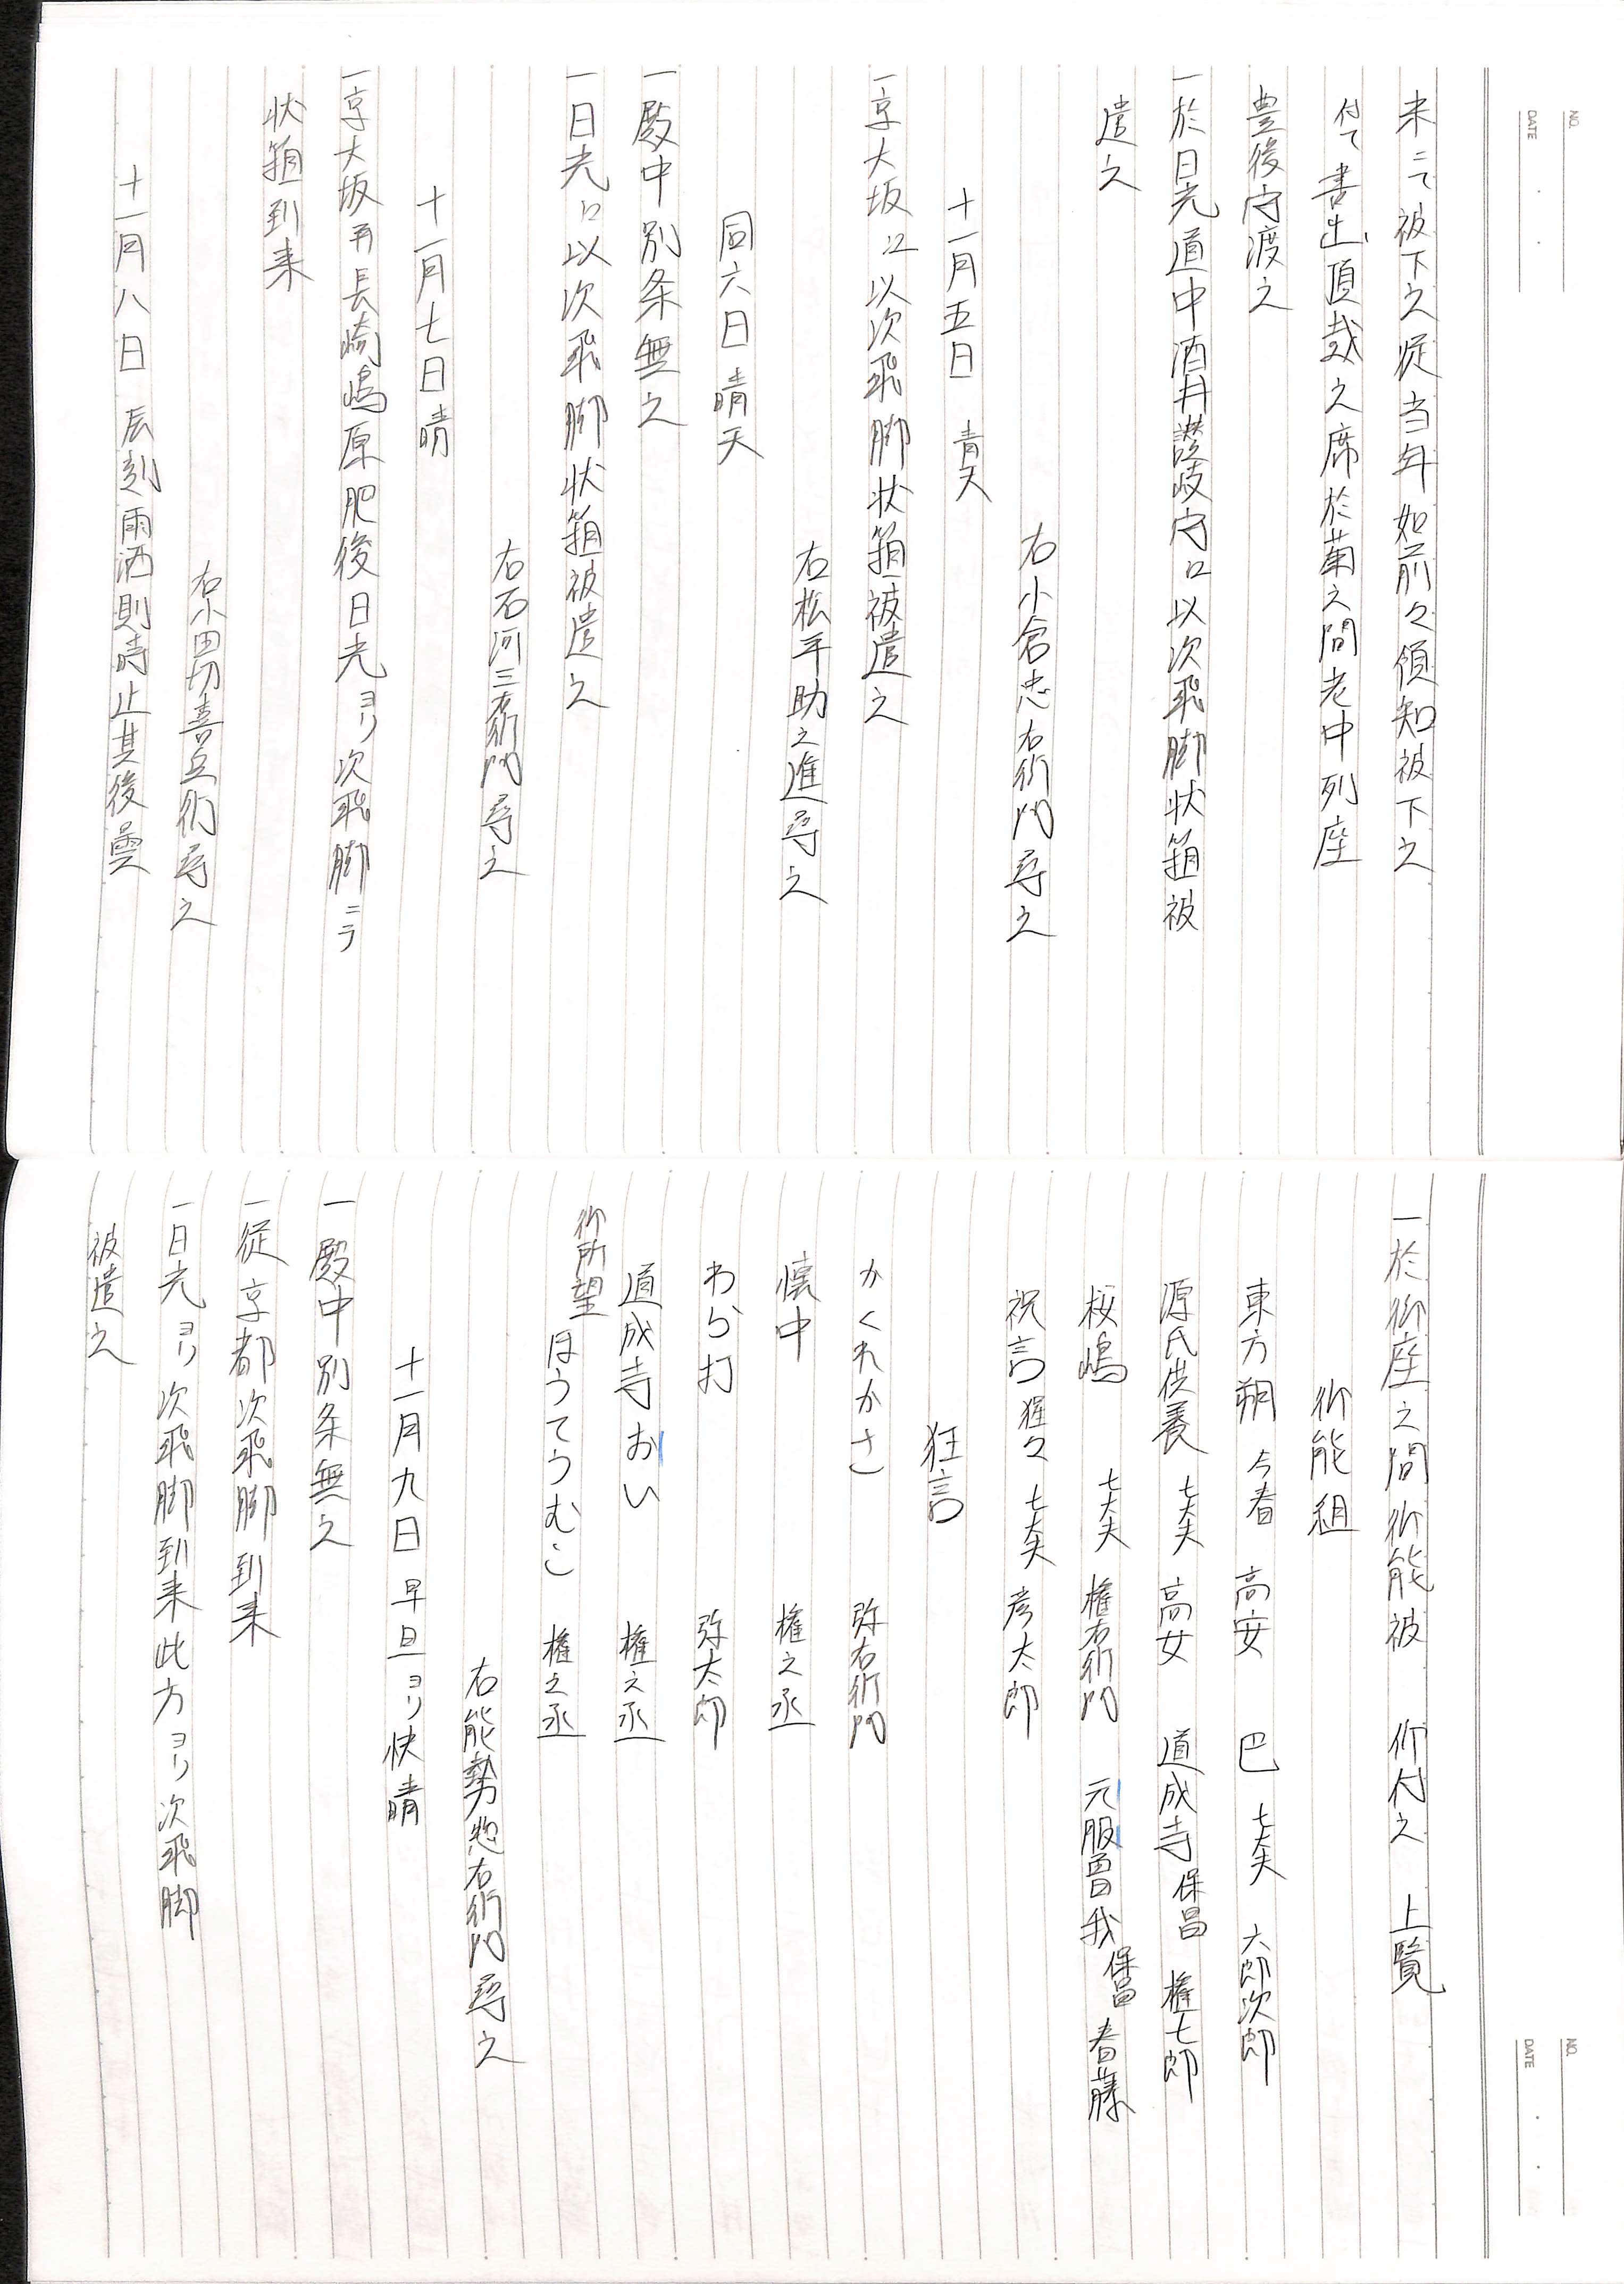 NO.
DATE
未ニて被下之従当年如前々領知被下之
付て書出頂戴之席於菊之間老中列座
豊後守渡之
一於日光道中酒井讃岐守口以次飛脚状箱被
遣之
右小倉忠右衛門尋之
十一月五日 青天
一京大坂江以次飛脚状箱被遣之
右松平助之進尋之
同六日晴天
一殿中別条無之
一日光口以次飛脚状箱被遣之
右石河三右衛門尋之
十一月七日晴
一京大坂并長崎嶋原肥後日光ヨリ次飛脚ニテ
状箱到来
右小田切喜兵衛尋之
十一月八日 辰刻雨洒則時止其後曇
NO.
DATE
一於御座之間御能被 仰付之 上覧
御能組
東方朔 今春 高安 巴 七大夫 六郎次郎
源氏供養 七大夫 高安 道成寺 保昌 権七郎
桜嶋 七大夫 権右衛門 元服曽我 保昌 春藤
祝言 猩々 七大夫 彦太郎
狂言
かくれかさ 弥右衛門
懐中 権之丞
わら打 弥太郎
道成寺 おい 権之丞
御所望 ほうてうむこ 権之丞
右能勢惣右衛門尋之
十一月九日 早旦ヨリ快晴
一殿中別条無之
一従京都次飛脚到来
一日光ヨリ次飛脚到来此方ヨリ次飛脚
被遣之